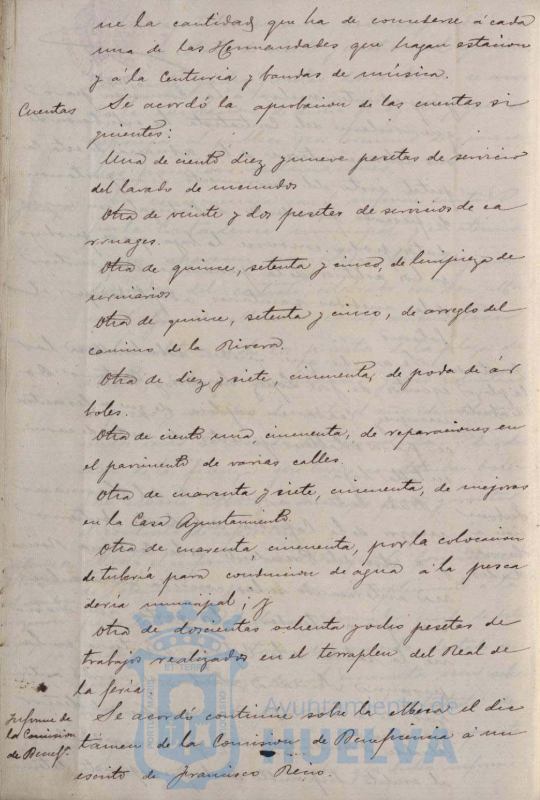 ne la cantidad que ha de concederse á cada
una de las Hermandades que hagan estacion
y á la Centuria y bandas de música.
Cuentas Se acordó la aprobacion de las cuentas si
guientes:
Una de ciento diez y nueve pesetas de servicio
del lavado de menudos
Otra de veinte y dos pesetas de servicios de ca
rruages.
Otra de quince, setenta y cinco, de limpieza de
urinarios
Otra de quince, setenta y cinco, de arreglo del
camino de la Rivera.
Otra de diez y siete, cincuenta, de poda de ár
boles.
Otra de ciento una, cincuenta, de reparaciones en
el pavimento de varias calles.
Otra de cuarenta y siete, cincuenta, de mejoras
en la Casa Ayuntamiento.
Otra de cuarenta, cincuenta, por la colocacion
de tubería para conduccion de agua á la pesca
dería municipal; y
Otra de doscientas ochenta y ocho pesetas de
trabajos realizados en el terraplen del Real de
la feria
Informe de
la Comision
de Benefa.
Se acordó continue sobre la Mesa el dic
támen de la Comision de Beneficencia á un
escrito de Francisco Recio.
Ayuntamiento de
HUELVA